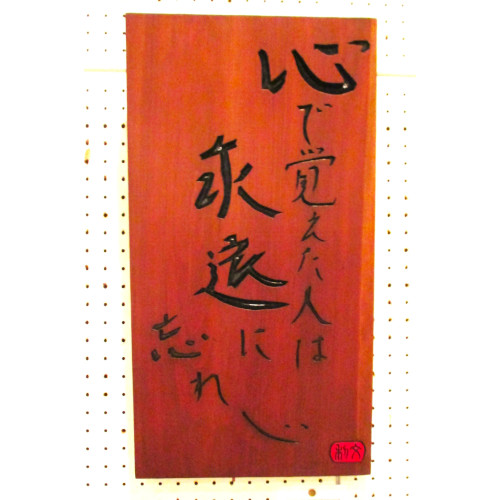 心で覚えた人は
永遠に
忘れじ